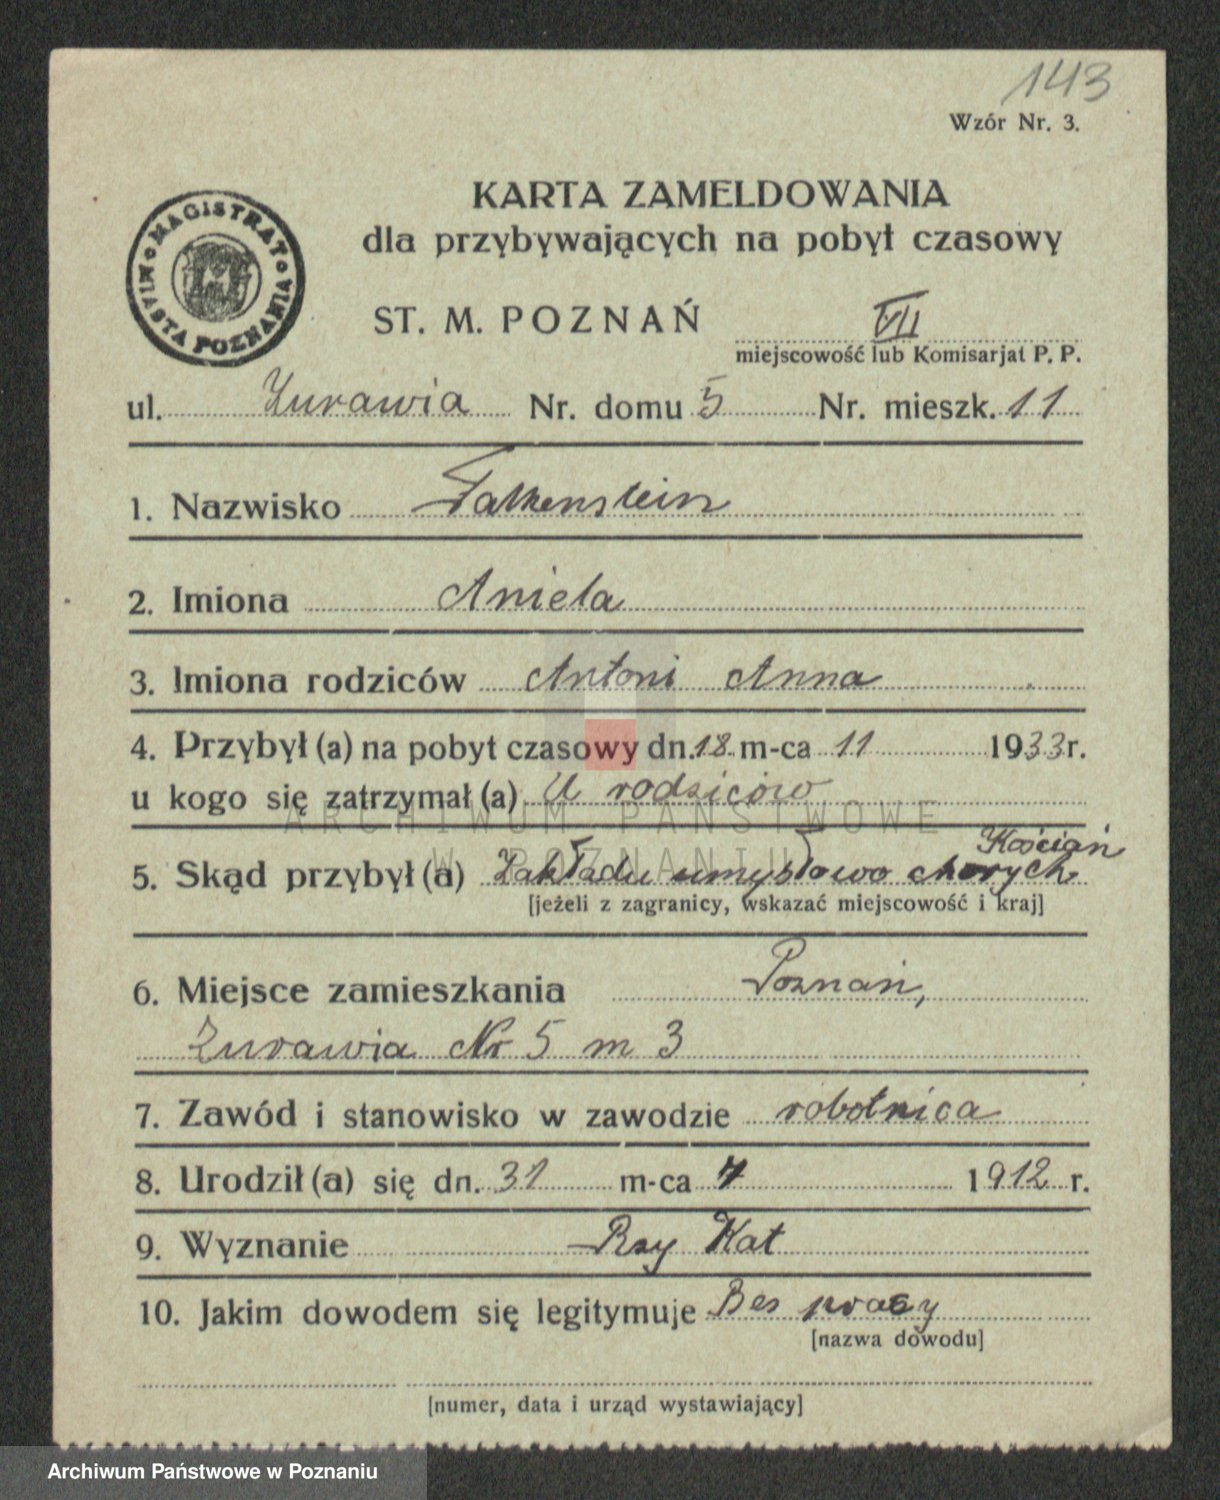 143
Wzór Nr. 3.
KARTA ZAMELDOWANIA
dla przybywających na pobyt czasowy
MAGISTRAT MIASTA POZNANIA
ST. M. POZNAŃ VII
miejscowość lub Komisarjat P. P.
ul. Żurawia Nr. domu 5 Nr. mieszk. 11
1. Nazwisko Falkenstein
2. Imiona Aniela
3. Imiona rodziców Antoni Anna
4. Przybył (a) na pobyt czasowy dn. 18 m-ca 11 1933 r.
u kogo się zatrzymał (a) U rodziców
ARCHIWUM PAŃSTWOWE
W POZNANIU
Kościań
5. Skąd przybył (a) Zakładu umysłowo chorych
[jeżeli z zagranicy, wskazać miejscowość i kraj]
6. Miejsce zamieszkania Poznań,
Żurawia Nr 5 m 3
7. Zawód i stanowisko w zawodzie robotnica
8. Urodził (a) się dn. 31 m-ca 7 1912 r.
9. Wyznanie Rzy Kat
10. Jakim dowodem się legitymuje Bes pracy
[nazwa dowodu]
[numer, data i urząd wystawiający]
Archiwum Państwowe w Poznaniu